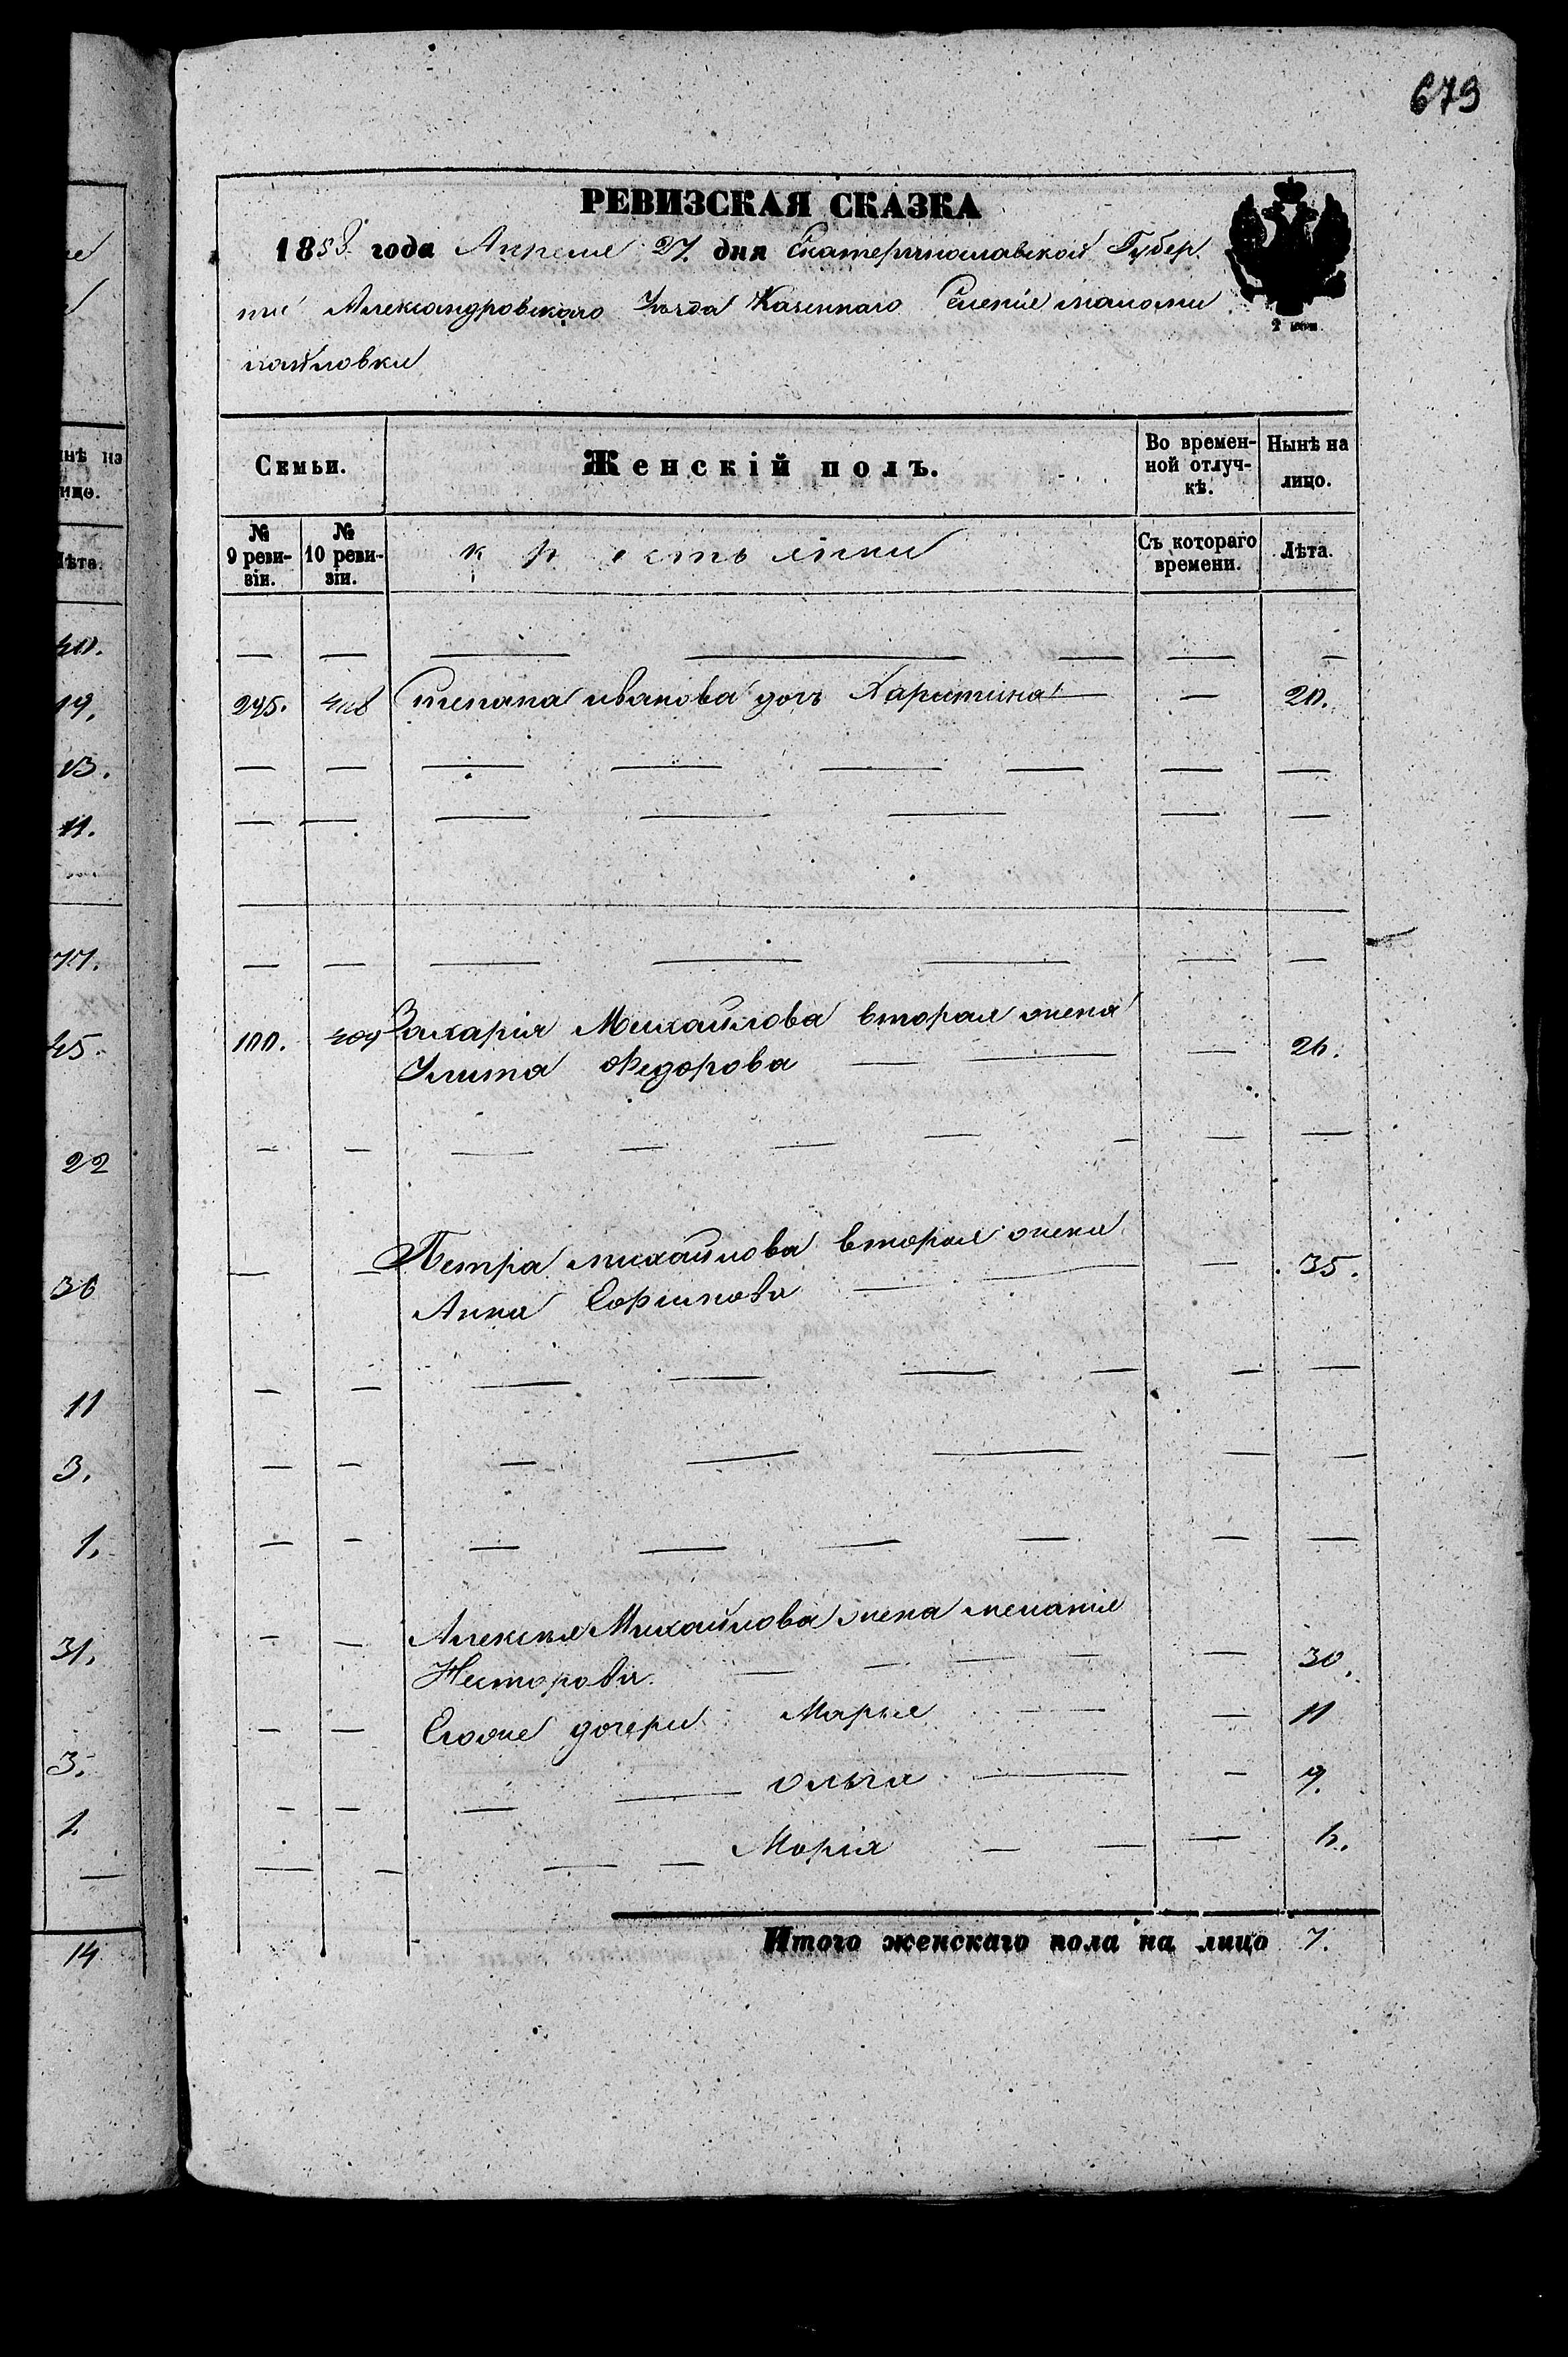 679
РЕВИЗСКАЯ СКАЗКА
1858 года Апреля 27. дня Екатеринославской Губер
нии Александровского Уезда Казеннаго Селение маломи
хайловки
2 коп.
Семьи. Женскій полъ. Во времен- Нынѣ на
ной отлуч- лицо.
кѣ.
№ № крестьянки Съ котораго Лѣта.
9 реви- 10 реви- времени.
зіи. зіи.
245. 408 Степана иванова доч Харитина — 20.
100. 409 Захарія Михайлова вторая жена
Улита Федорова — 26.
Петра михайлова вторая жена — 35.
Анна Софинова
Алексея Михайлова жена меланія
Несторова — 30.
Егоже дочери Марья — 11
ольга — 9.
Морія — 6.
Итого женскаго пола на лицо 7.
нѣ на
ицо.
Лѣта.
40.
19.
13.
11.
77.
45.
22
36
11
3.
1.
31.
3.
1.
14